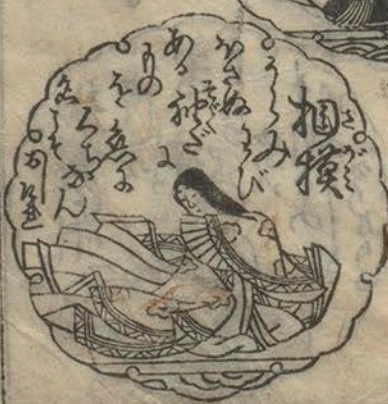 相模
さがみ
うらみ
わび
ほさぬ
袖だに
そで
ある
ものを
恋に
くちなん
名こそ
おしけれ